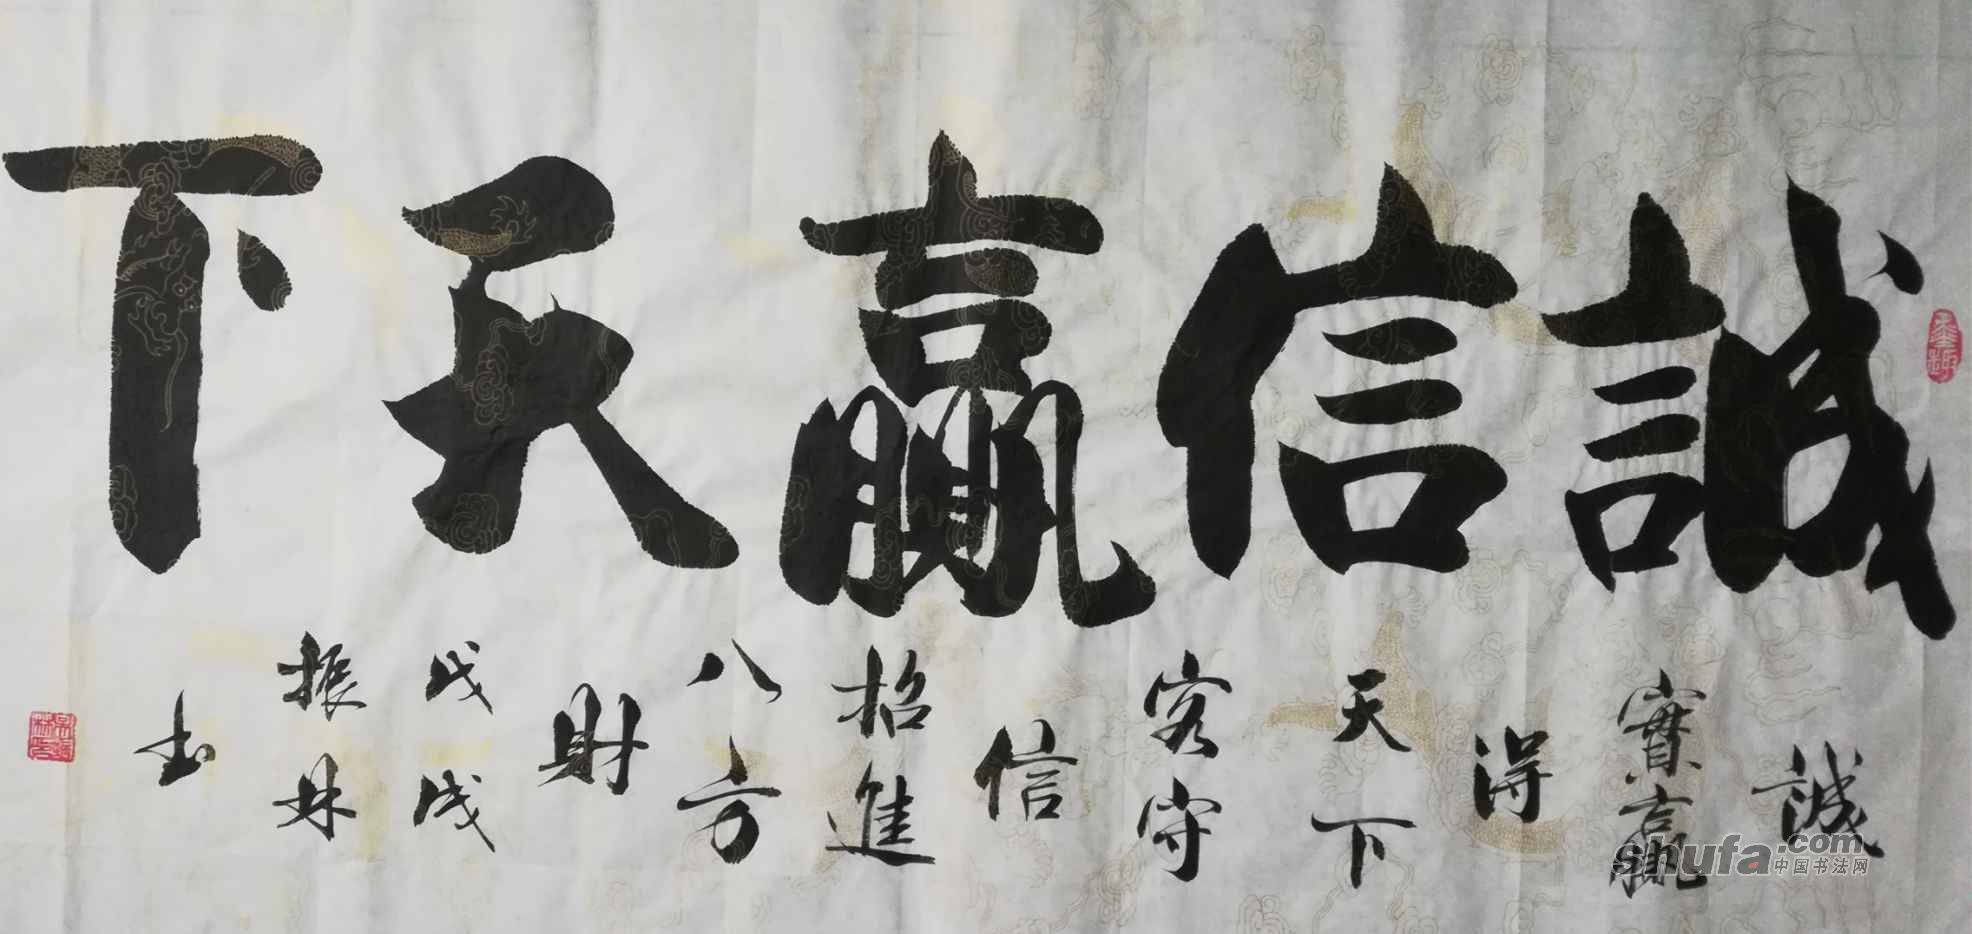 誠信贏天下
誠
實贏
得
天下
客守
信
招進
八方
財
戊戌
振林
书
墨趣
shufa.com
中国书法网